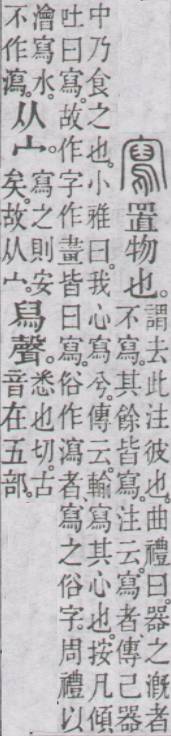 寫置物也。
謂去此注彼也。曲禮曰。器之漑者
不寫。其餘皆寫。注云。寫者傳己器
中乃食之也。小雅曰。我心寫兮。傳云。輸寫其心也。按凡傾
吐曰寫。故作字作畫皆曰寫。俗作瀉者寫之俗字。周禮以
澮寫水。
不作瀉。
从宀。
寫之則安
矣。故从宀。
舄聲。
悉也切。古
音在五部。